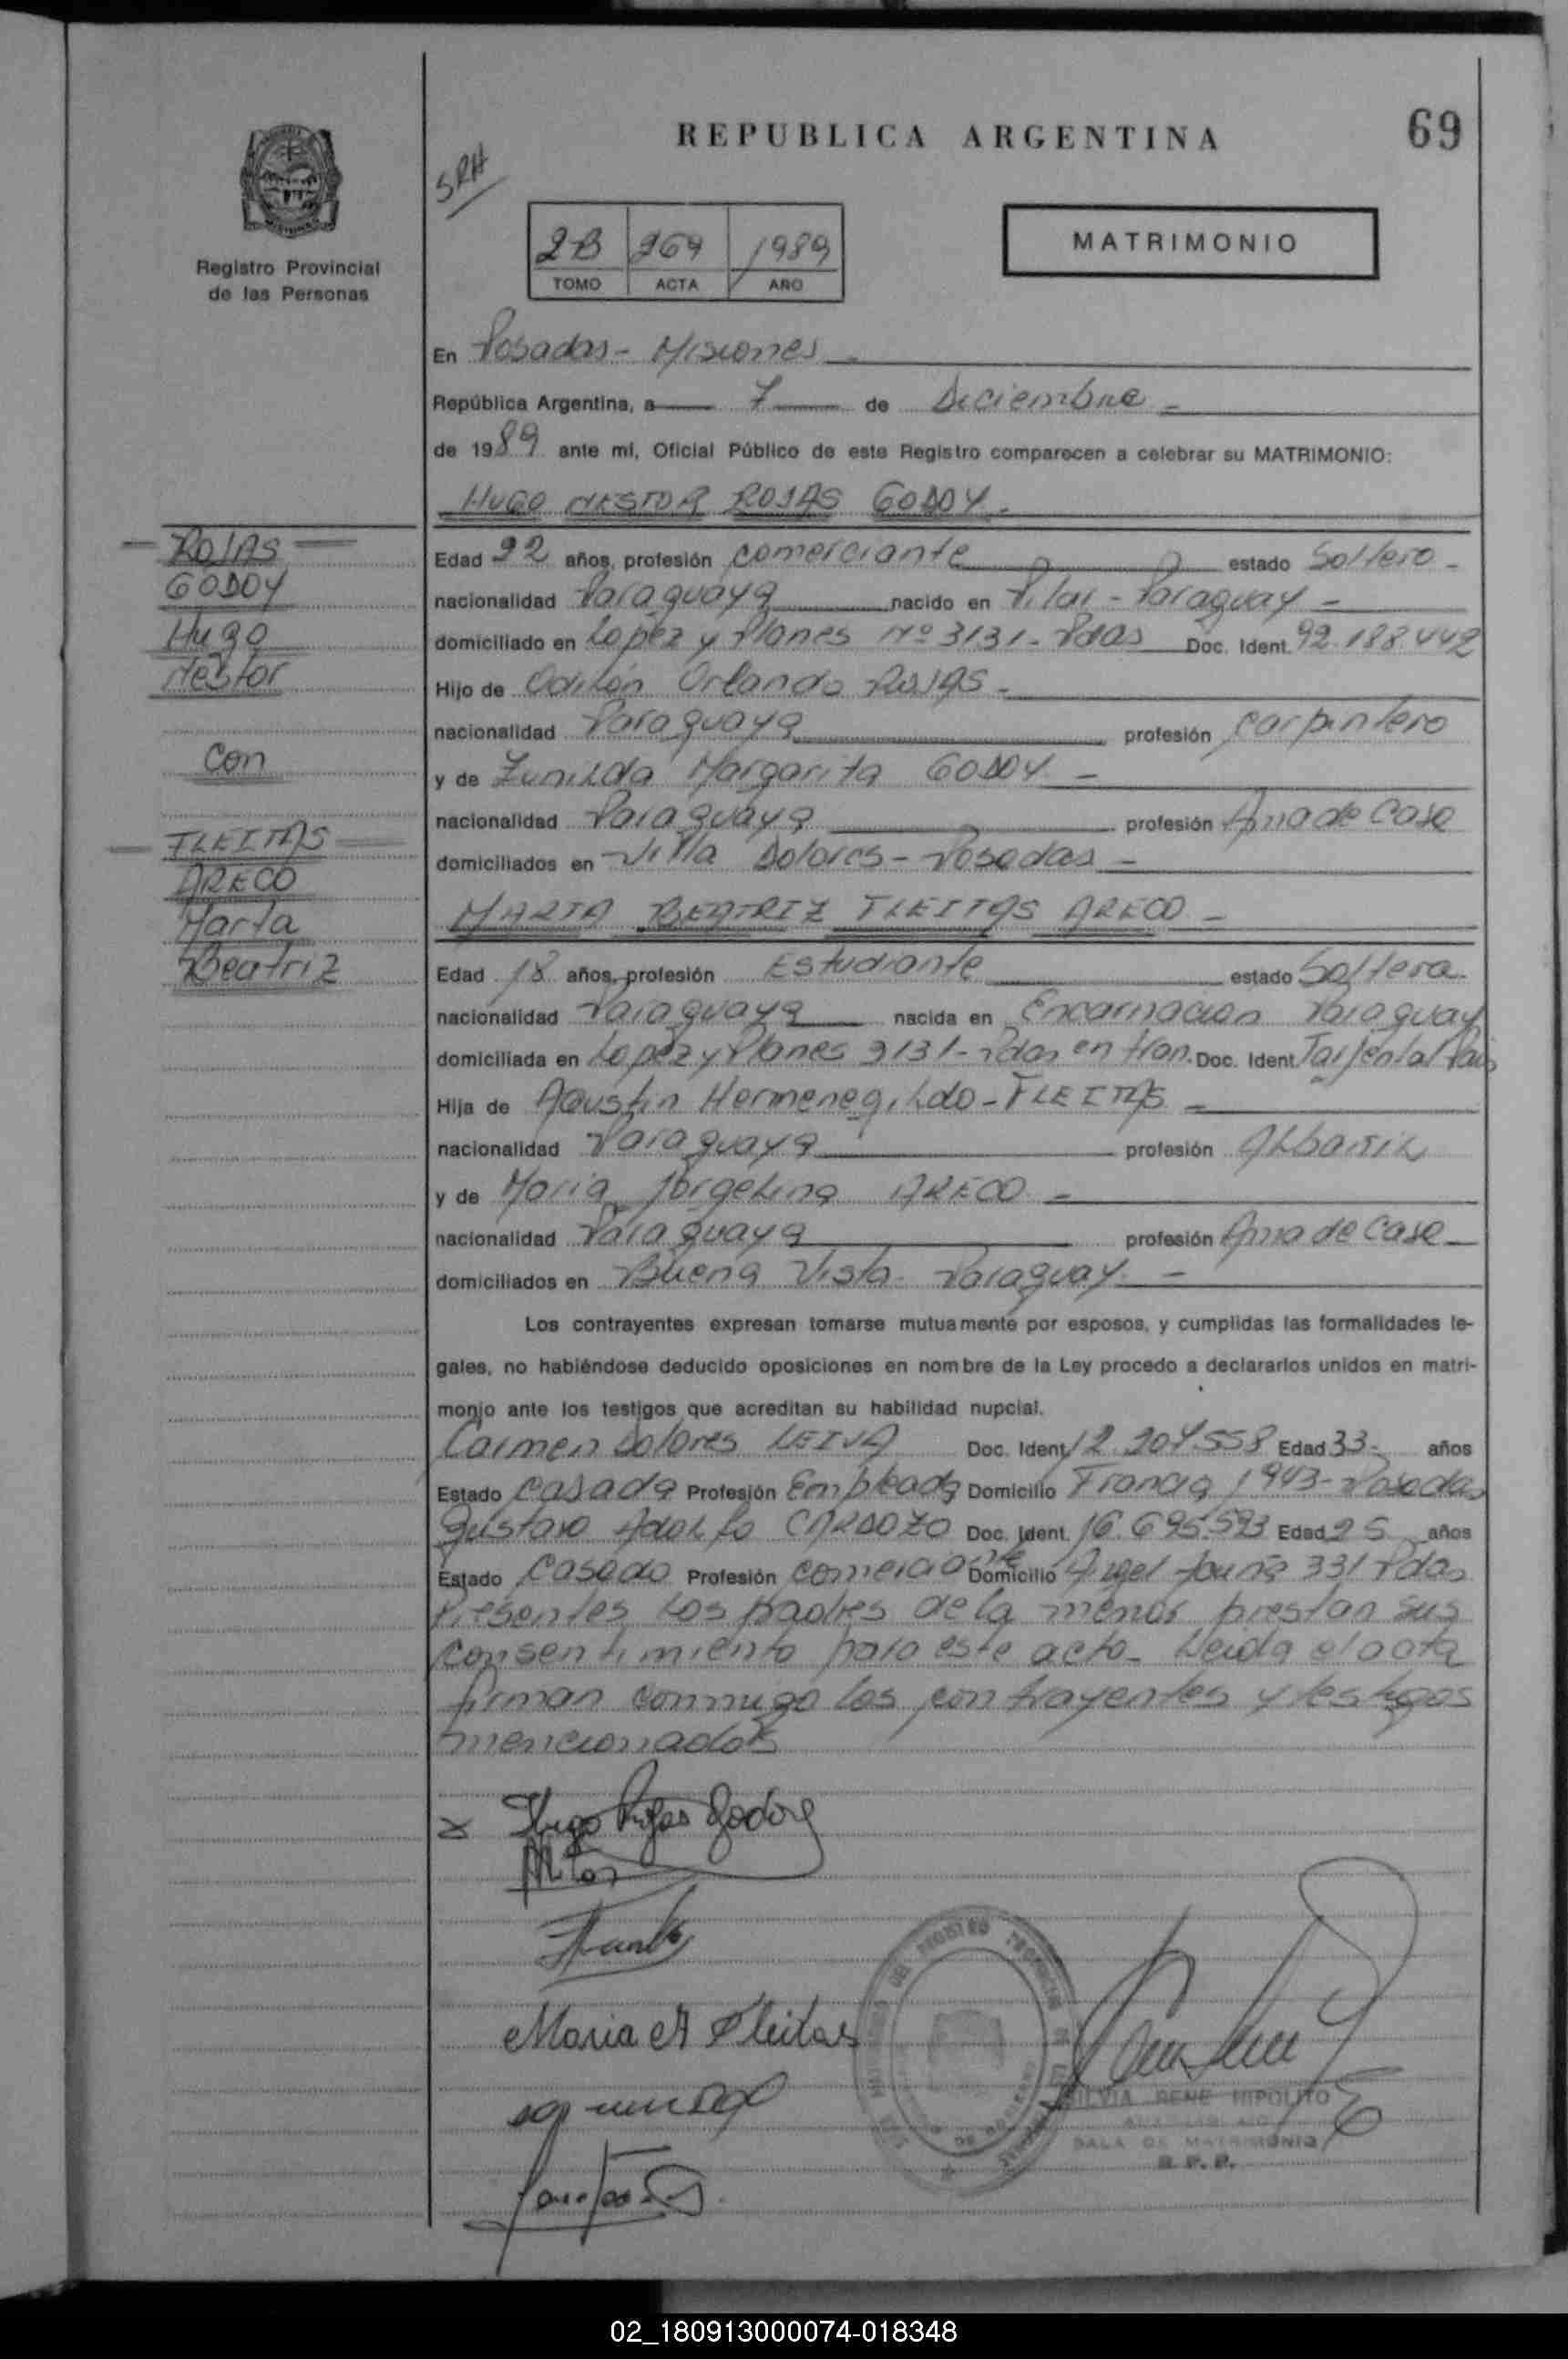 REPUBLICA ARGENTINA
69
SRH
Registro Provincial
de las Personas
2B 269 1989
TOMO ACTA AÑO
MATRIMONIO
En Posadas - Misiones
República Argentina, a 7 de Diciembre -
de 1989 ante mi, Oficial Público de este Registro comparecen a celebrar su MATRIMONIO:
HUGO NESTOR ROJAS GODOY -
ROJAS
GODOY
Hugo
Nestor
con
FLEITAS
ARECO
Marta
Beatriz
Edad 22 años, profesión comerciante estado Soltero -
nacionalidad Paraguaya nacido en Pilar - Paraguay -
domiciliado en Lopez y Planes Nº 3131 - Pdas Doc. Ident. 92.188.442
Hijo de Odilón Orlando ROJAS -
nacionalidad Paraguaya profesión carpintero
y de Zunilda Margarita GODOY -
nacionalidad Paraguaya profesión Ama de Casa
domiciliados en Villa Dolores - Posadas -
MARTA BEATRIZ FLEITAS ARECO -
Edad 18 años, profesión Estudiante estado Soltera -
nacionalidad Paraguaya nacida en Encarnacion Paraguay
domiciliada en Lopez y Planes 3131 - Pdas en tran. Doc. Ident.
Hija de Agustin Hermenegildo - FLEITAS -
nacionalidad Paraguaya profesión Albañil
y de Maria Jorgelina ARECO -
nacionalidad Paraguaya profesión Ama de Casa
domiciliados en Buena Vista - Paraguay -
Los contrayentes expresan tomarse mutuamente por esposos, y cumplidas las formalidades le-
gales, no habiéndose deducido oposiciones en nombre de la Ley procedo a declararlos unidos en matri-
monio ante los testigos que acreditan su habilidad nupcial.
Carmen Dolores LEIVA Doc. Ident. 12.207.558 Edad 33 - años
Estado Casada Profesión Empleada Domicilio Francia 1943 - Posadas
Gustavo Adolfo CARDOZO Doc. Ident. 16.695.593 Edad 25 años
Estado Casado Profesión comerciante Domicilio Angel 331 Pdas
Presentes los padres de la menor prestan sus
consentimiento para este acto - Leida el acta
firman conmigo los contrayentes y testigos
mencionados
x Hugo Rojas Godoy
Maria A Fleitas
SILVIA RENE HIPOLITO
SALA DE MATRIMONIO
R. P. P.
02_180913000074-018348